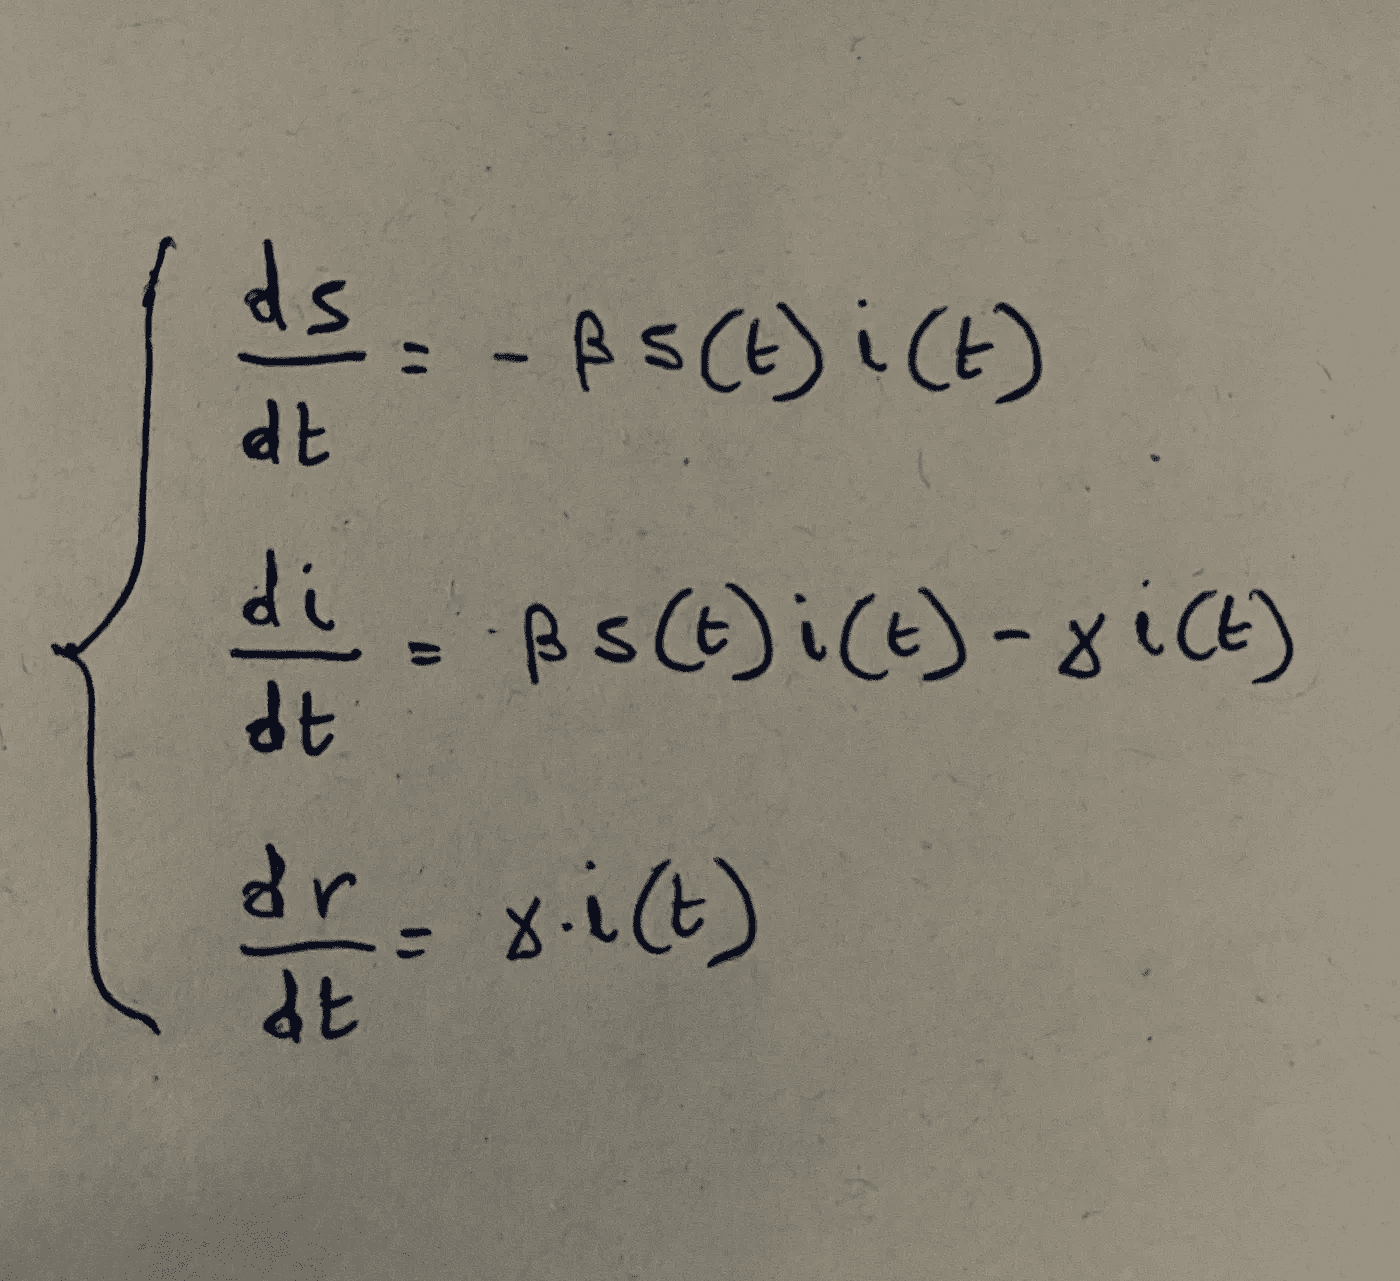 ds/dt = - β s(t) i(t)
di/dt = β s(t) i(t) - γ i(t)
dr/dt = γ . i(t)